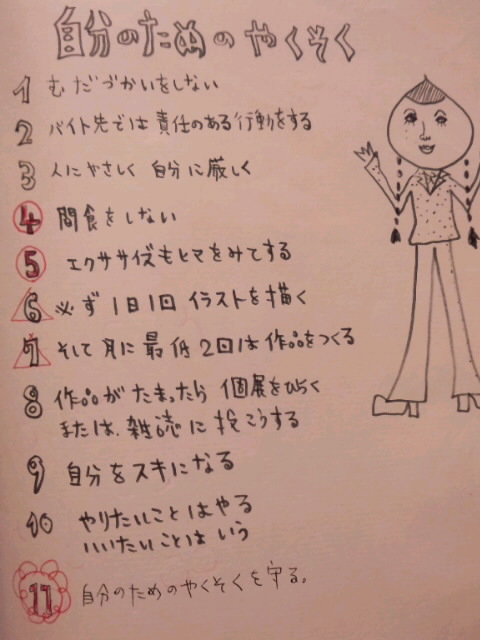 自分のためのやくそく
1 むだづかいをしない
2 バイト先では責任のある行動をする
3 人にやさしく 自分に厳しく
4 間食をしない
5 エクササイズもヒマをみてする
6 必ず1日1回 イラストを描く
7 そして月に最低2回は作品をつくる
8 作品がたまったら 個展をひらく
または、雑誌に投こうする
9 自分をスキになる
10 やりたいことはやる
いいたいことはいう
11 自分のためのやくそくを守る。